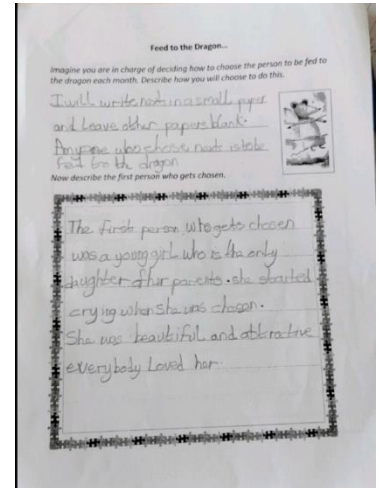 Feed to the Dragon...
Imagine you are in charge of deciding how to choose the person to be fed to
the dragon each month. Describe how you will choose to do this.
I will write next in a small paper
and Leave other papers blank.
Anyone who chose next is to be
fed to the dragon
Now describe the first person who gets chosen.
The first person who gets chosen
was a young girl who is the only
daughter of her parents. she started
crying when she was chosen.
She was beautiful and attractive
everybody Loved her